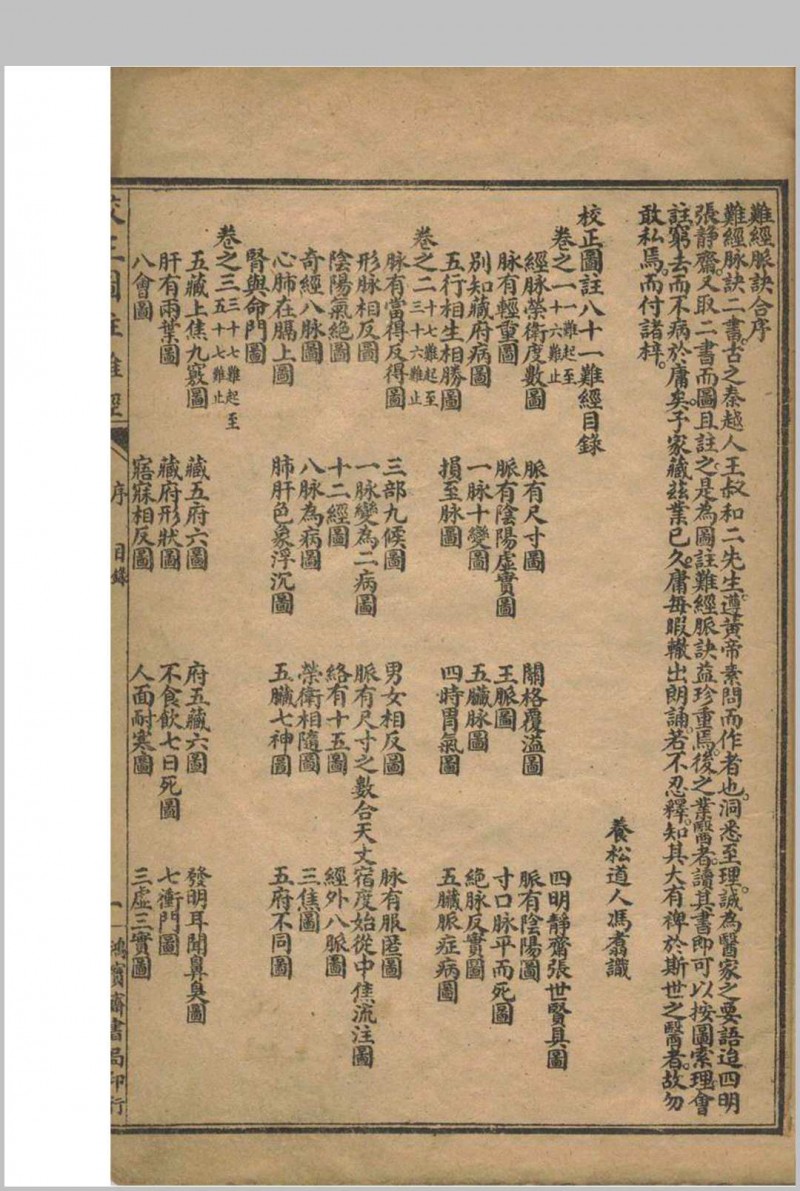 難經脈訣合序
難經脉訣二書古之秦越人王叔和二先生遵黃帝素問而作者也洞悉至理誠為醫家之要語迨四明
張靜齋又取二書而圖且註之是為圖註難經脈訣益珍重焉後之業醫者讀其書即可以按圖索理會
註窮去而不病於庸矣予家藏茲業已久庸每暇輙出朗誦若不忍釋知其大有裨於斯世之醫者故勿
敢私焉而付諸梓
養松道人馮翥識
校正圖註八十一難經目錄
卷之一 一難起至十六難止
四明靜齋張世賢具圖
經脉榮衛度數圖 脈有尺寸圖 關格覆溢圖 脈有陰陽圖
脉有輕重圖 脈有陰陽虛實圖 王脈圖 寸口脉平而死圖
別知藏府病圖 一脉十變圖 五臟脉圖 絕脉反實圖
五行相生相勝圖 損至脉圖 四時胃氣圖 五臟脈症病圖
卷之二 十七難起至三十六難止
脉有當得反得圖 三部九候圖 男女相反圖 脉有服匿圖
形脉相反圖 一脉變為二病圖 脈有尺寸之數合天文宿度始從中焦流注圖
陰陽氣絕圖 十二經圖 絡有十五圖 經外八脈圖
奇經八脉圖 八脉為病圖 榮衛相隨圖 三焦圖
心肺在膈上圖 肺肝色象浮沉圖 五臟七神圖 五府不同圖
腎與命門圖
卷之三 三十七難起至五十七難止
五藏上焦九竅圖 藏五府六圖 府五藏六圖 發明耳聞鼻臭圖
肝有兩葉圖 藏府形狀圖 不食飲七日死圖 七衝門圖
八會圖 寤寐相反圖 人面耐寒圖 三虛三實圖
校正圖註難經 序 目錄 一 鴻寶齋書局印行